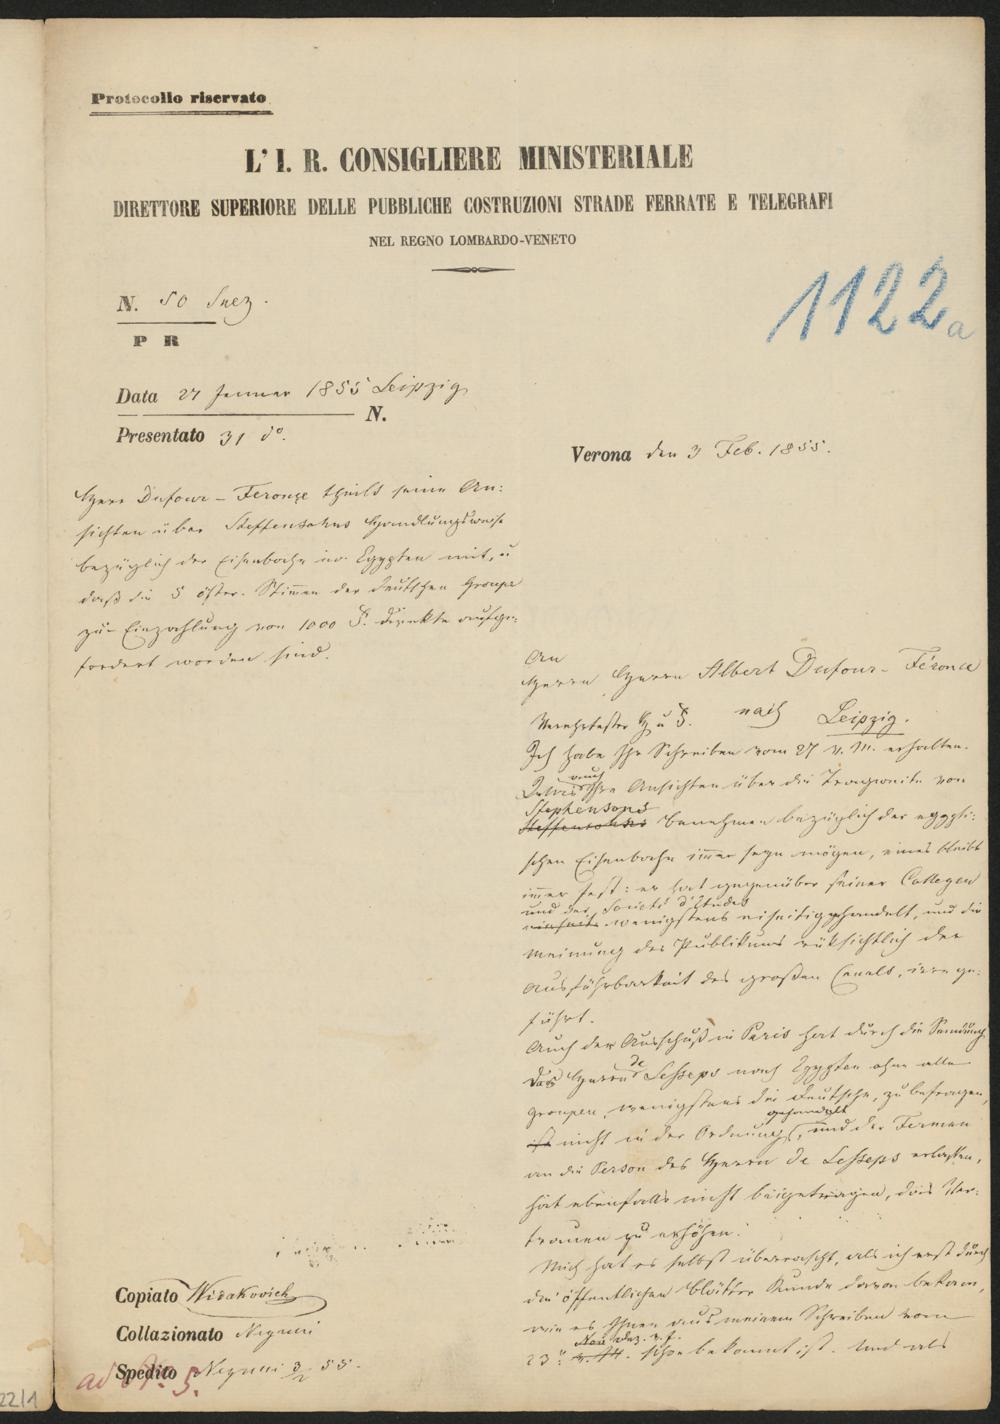 Protocollo riservato
L' I. R. CONSIGLIERE MINISTERIALE
DIRETTORE SUPERIORE DELLE PUBBLICHE COSTRUZIONI STRADE FERRATE E TELEGRAFI
NEL REGNO LOMBARDO-VENETO
1122a
N. 50 Suez.
P R
Data 27 Jenner 1855 Leipzig
N.
Presentato 31 do.
Verona den 3 Feb. 1855.
Herr Dufour-Feronçe theilt seine An:
sichten über Steffensohns Handlungsweise
bezüglich der Eisenbahn in Egypten mit, u
daß die 5 öster. Stimmen der deutschen Groupe
zur Einzahlung von 1000 F. direkte aufge:
fordert worden sind.
An
Herrn Herrn Albert Dufour-Féronce
Verehrtester H u F. nach Leipzig.
Ich habe Ihr Schreiben vom 27 v. M. erhalten.
auch
Ihre Ansichten über die Tragweite von
Stephensons
Steffensohns Benehmen bezüglich der egypti:
schen Eisenbahn immer seyn mögen, eines bleibt
immer fest: er hat gegenüber seiner Collegen
und der Societé d'Etudes
wenigstens einseitig gehandelt, und die
Meinung des Publikums rüksichtlich der
Ausführbarkeit des großen Canals, irre ge:
führt.
Auch der Ausschuß in Paris hat durch die Sendung
de
des Herrn Lesseps nach Egypten ohne alle
Groupen, wenigstens die deutsche, zu befragen,
gehandelt
ist nicht in der Ordnung, und der Ferman
an die Person des Herrn de Lesseps erlassen,
hat ebenfalls nicht beigetragen, das Ver:
trauen zu erhöhen.
Mich hat es selbst überrascht, als ich erst durch
die öffentlichen Blätter Kunde davon bekam,
wie es Ihnen aus meinem Schreiben vom
23n schon bekannt ist. Und als
Copiato Widakovich
Collazionato Negrini
Spedito Negrini 3/2 55.
ad No. 5.
22/1